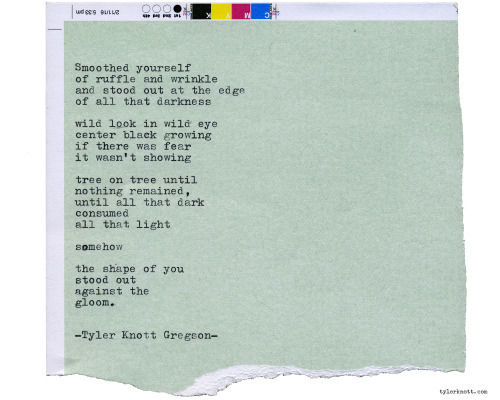 2/11/16 5:33 pm
1st 2nd 3rd 4th
K Y M C
Smoothed yourself
of ruffle and wrinkle
and stood out at the edge
of all that darkness
wild look in wild eye
center black growing
if there was fear
it wasn't showing
tree on tree until
nothing remained,
until all that dark
consumed
all that light
somehow
the shape of you
stood out
against the
gloom.
-Tyler Knott Gregson-
tylerknott.com